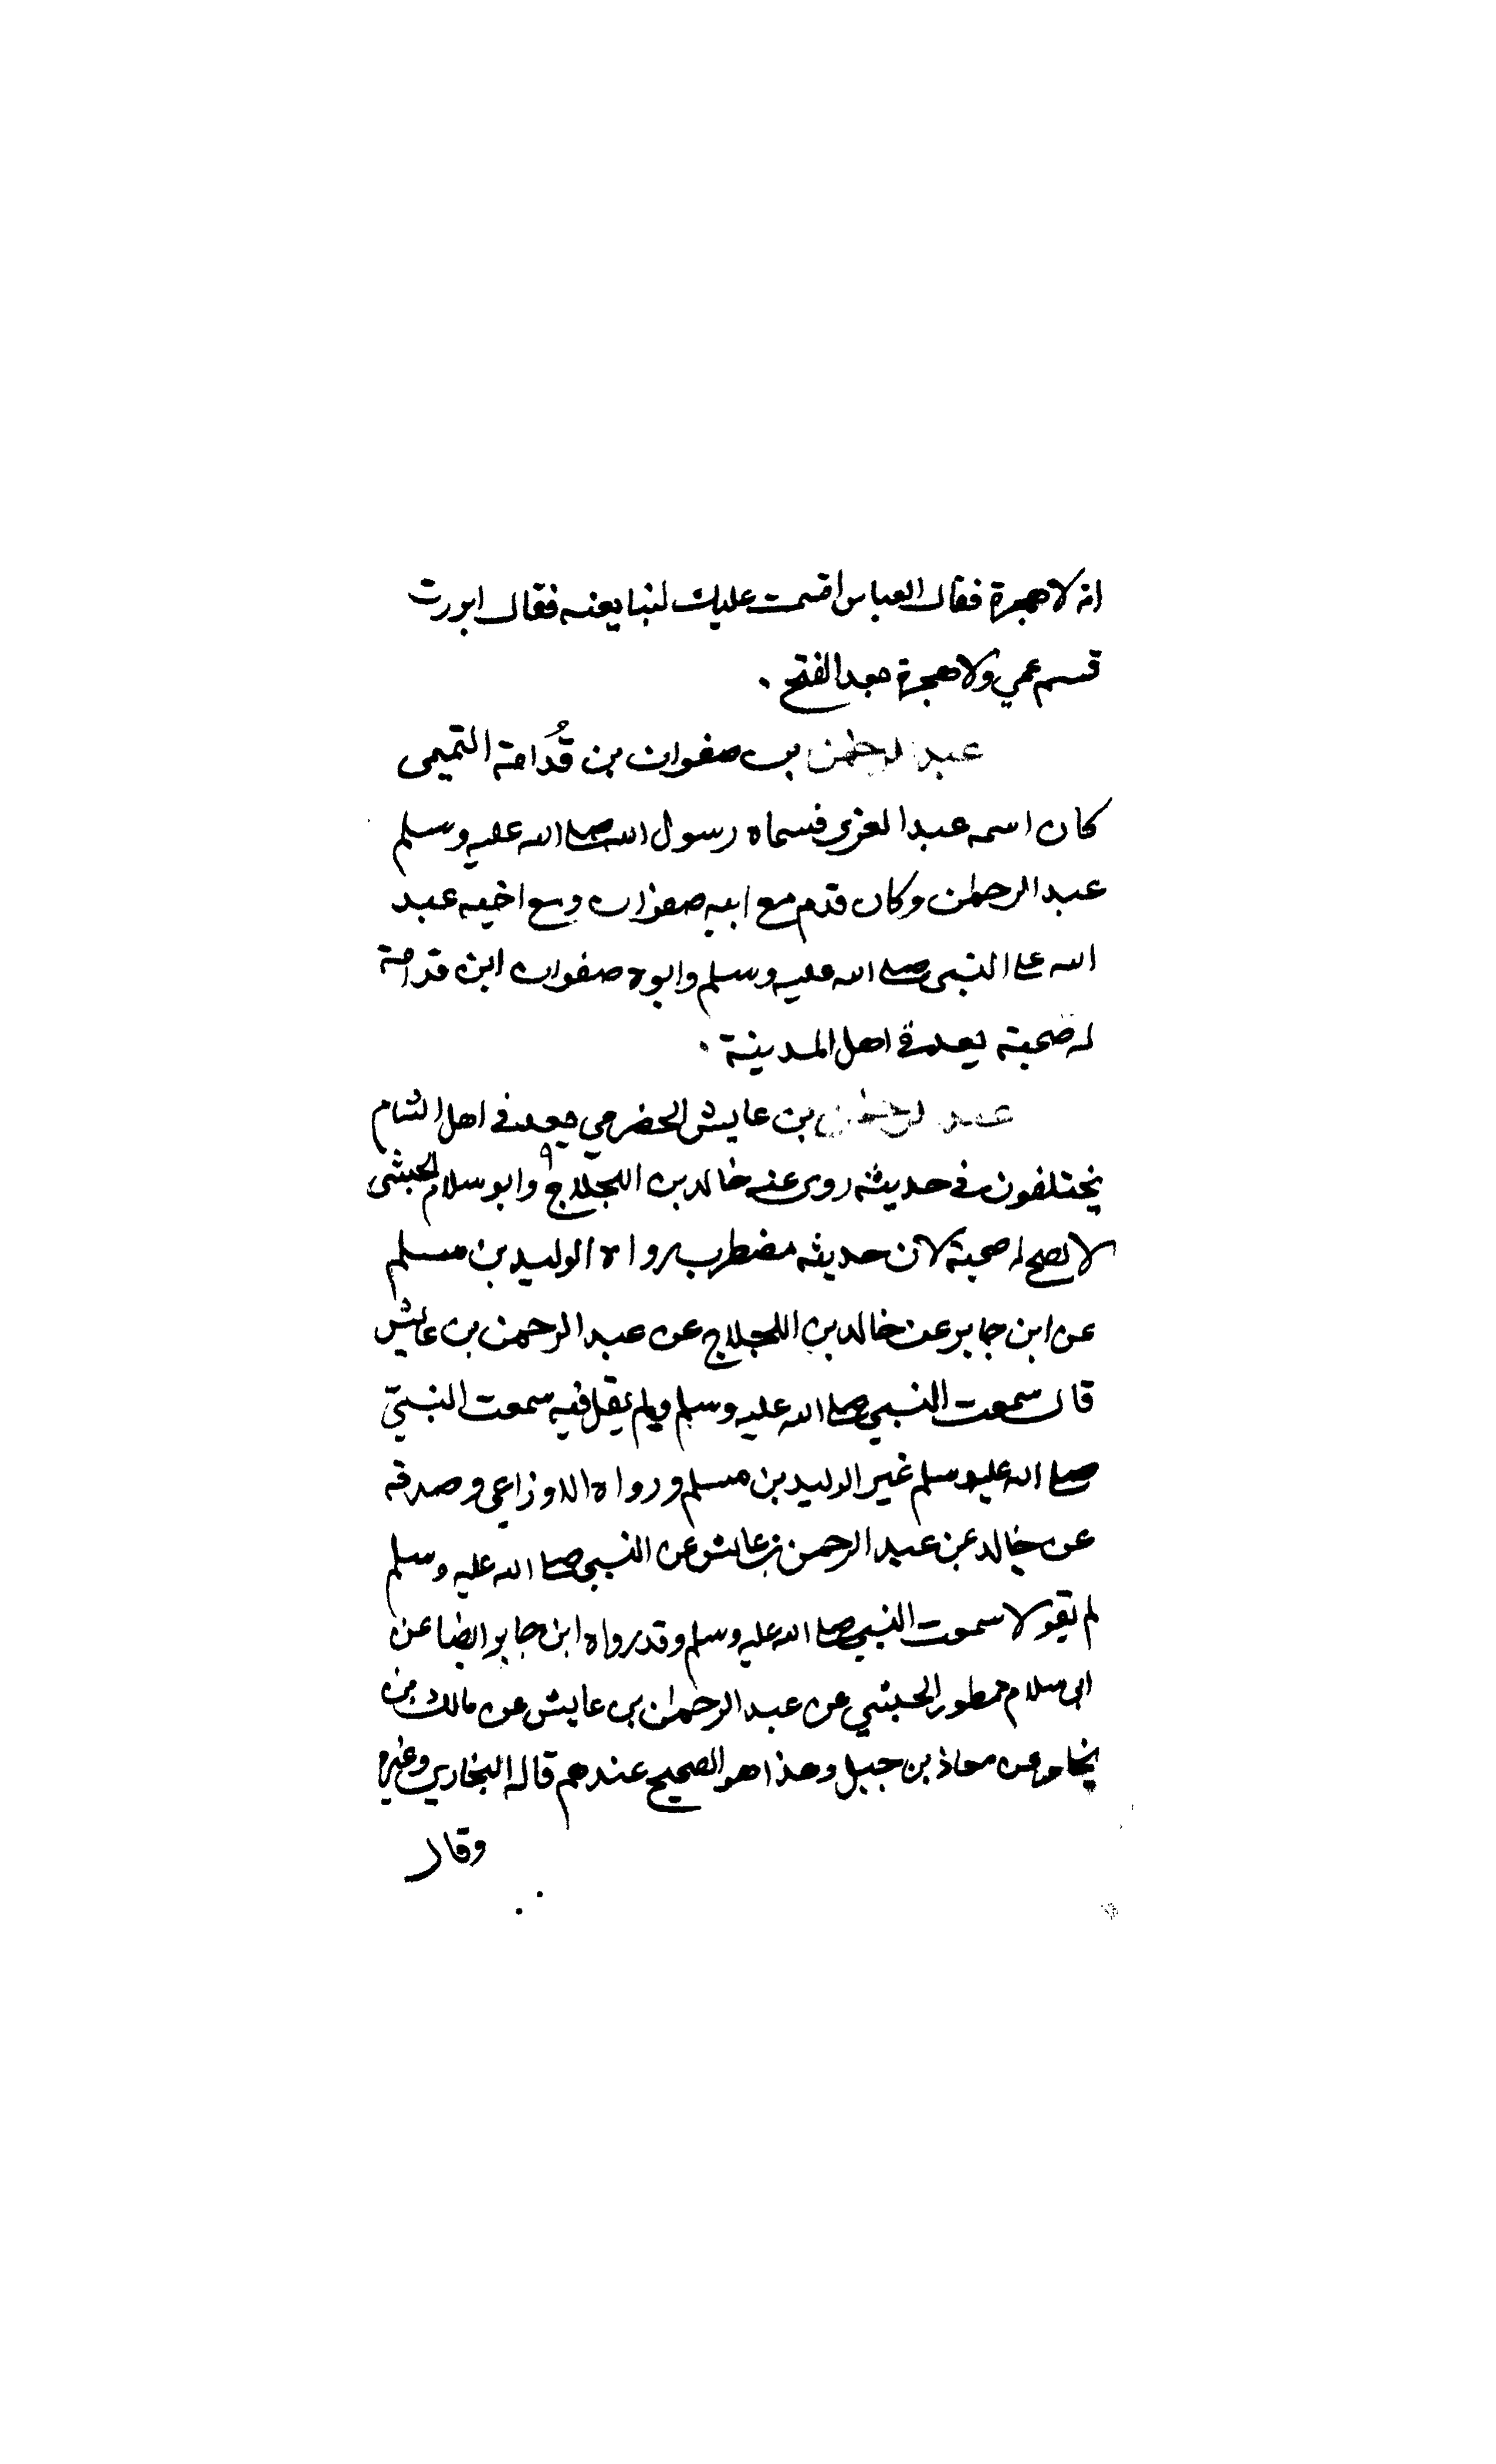 انه لا هجرة فقال العباس اقسمت عليك لتبايعنه فقال ابررت
قسم عمي ولا هجرة بعد الفتح .
عبد الرحمن بن صفوان بن قُدامة التميمى
كان اسمه عبد العزى فسماه رسول الله صلى الله عليه وسلم
عبد الرحمن وكان قدم مع ابيه صفوان ومع اخيه عبد
الله على النبى صلى الله عليه وسلم وابوه صفوان ابن قدامة
له صحبة يعد في اهل المدينة .
عبد الرحمن بن عايش الحضرمي يعد في اهل الشام
يختلفون في حديثه روى عنه خالد بن اللجلاج وابو سلام الحبشى
لا تصح له صحبة لان حديثه مضطرب رواه الوليد بن مسلم
عن ابن جابر عن خالد بن اللجلاج عن عبد الرحمن بن عايش
قال سمعت النبي صلى الله عليه وسلم ولم يقل فيه سمعت النبيّ
صلى الله عليه وسلم غير الوليد بن مسلم ورواه الاوزاعى وصدقه
عن خالد عن عبد الرحمن بن عايش عن النبي صلى الله عليه وسلم
لم يقولا سمعت النبي صلى الله عليه وسلم وقد رواه ابن جابر ايضا عن
ابى سلام ممطور الحبشي عن عبد الرحمن بن عايش عن مالك بن
يخامر عن معاذ بن جبل وهذا هو الصحيح عندهم قاله البخاري وغيره
وقال